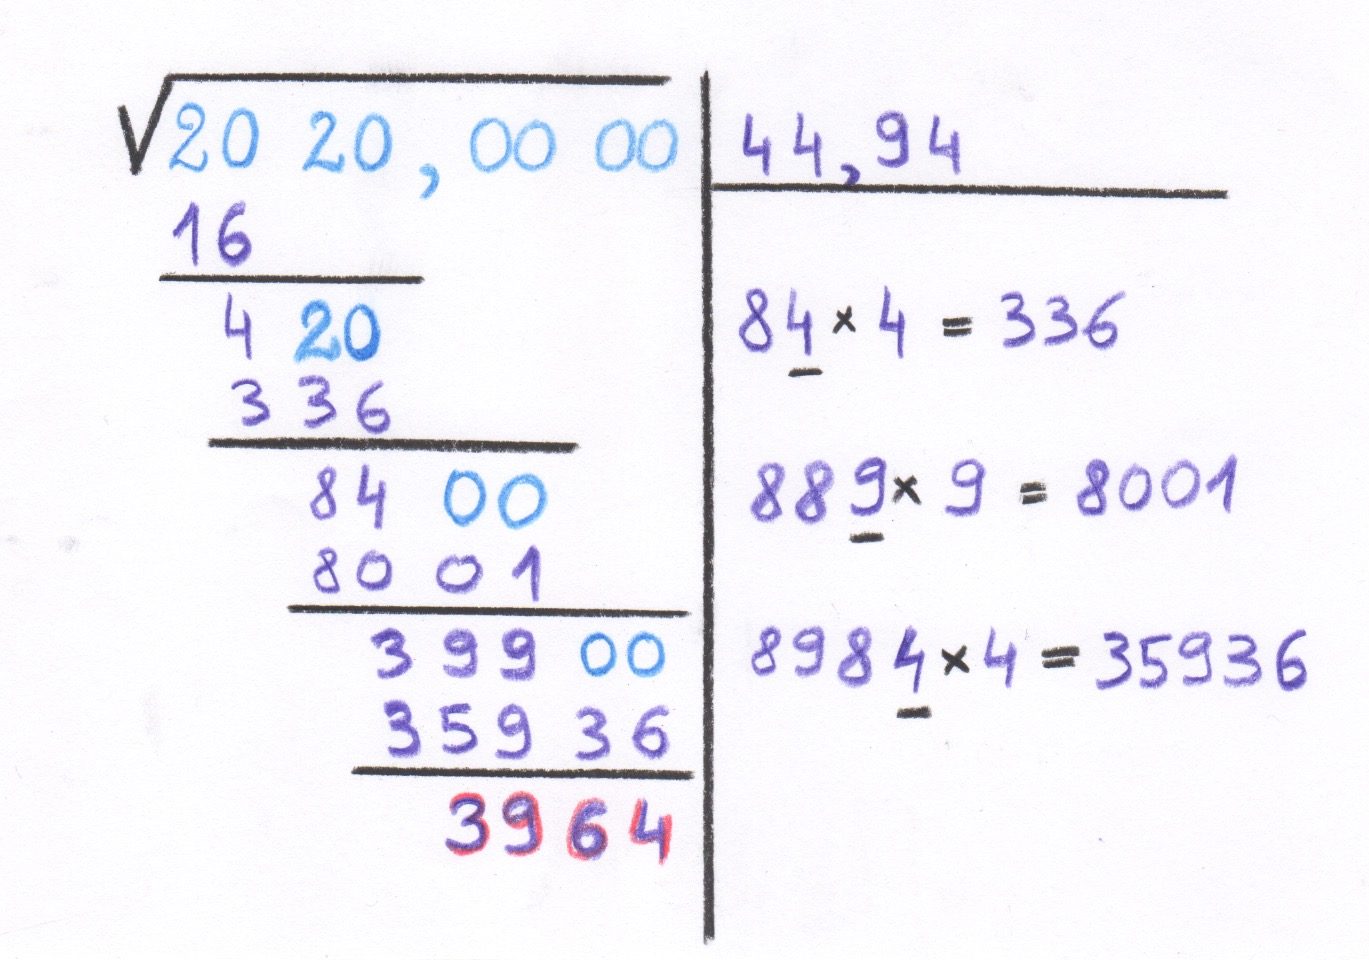 √20 20,00 00 44,94
16
4 20 84 × 4 = 336
3 36
84 00 889 × 9 = 8001
80 01
399 00 8984 × 4 = 35936
359 36
3964